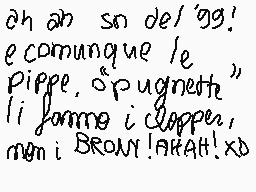 ah ah sn del '99!
e comunque le
pippe, o "pugnette"
li fanno i clopper,
non i BRONY! AHAH! XD